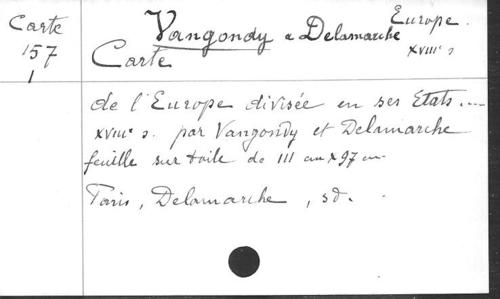 Carte
157
1
Vangondy & Delamarche
Europe.
XVIIIe s
Carte
de l'Europe divisée en ses Etats....
XVIIIe s. par Vangondy et Delamarche
feuille sur toile de 111 cm x 97 cm
Paris, Delamarche, sd.